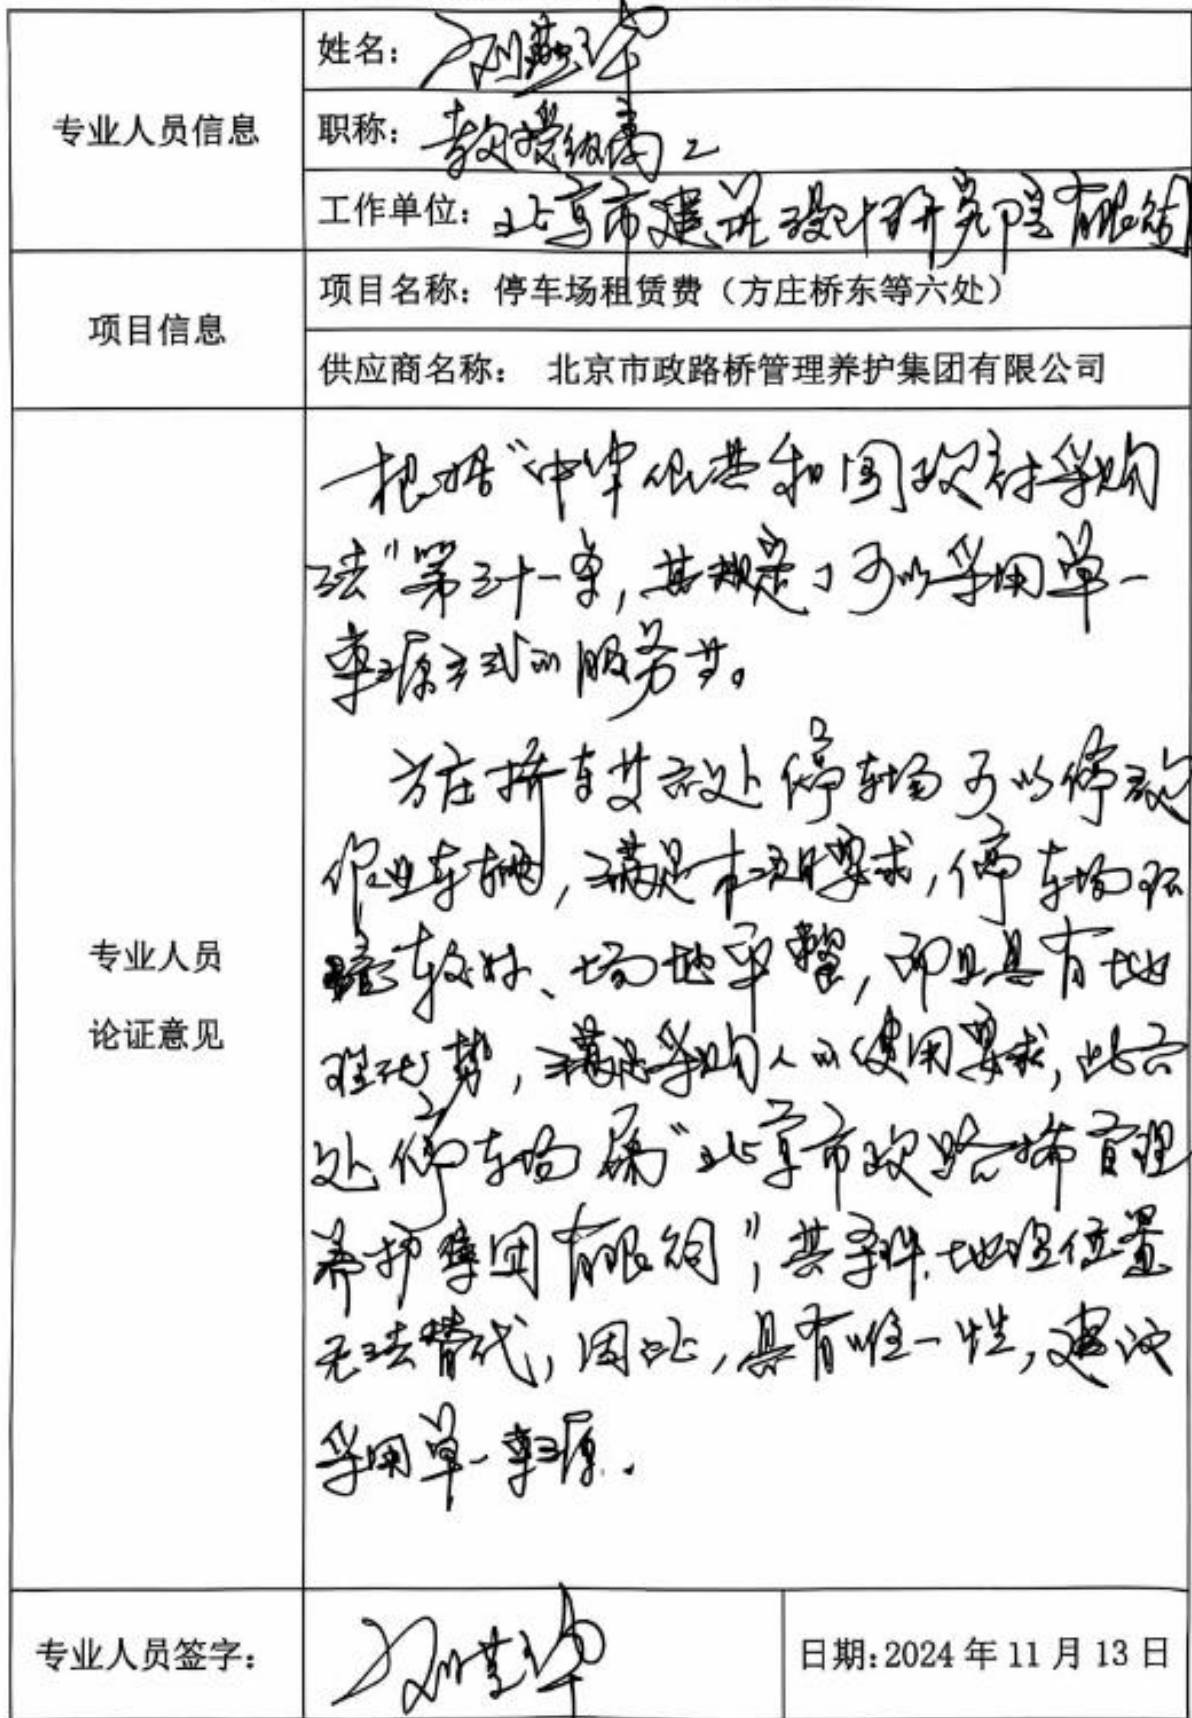 专业人员信息
姓名：刘燕华
职称：教授级高工
工作单位：北京市建筑设计研究院有限公司
项目信息
项目名称：停车场租赁费（方庄桥东等六处）
供应商名称： 北京市政路桥管理养护集团有限公司
专业人员
论证意见
根据“中华人民共和国政府采购
法”第三十一条，其规定了可以采用单一
来源方式的服务等。
方庄桥东等六处停车场可以停放
作业车辆，满足本项目要求，停车场环
境较好、场地平整，而且具有地
理优势，满足采购人的使用要求，此六
处停车场属“北京市政路桥管理
养护集团有限公司”，其条件、地理位置
无法替代，因此，具有唯一性，建议
采用单一来源．
专业人员签字：
日期：2024 年 11 月 13 日